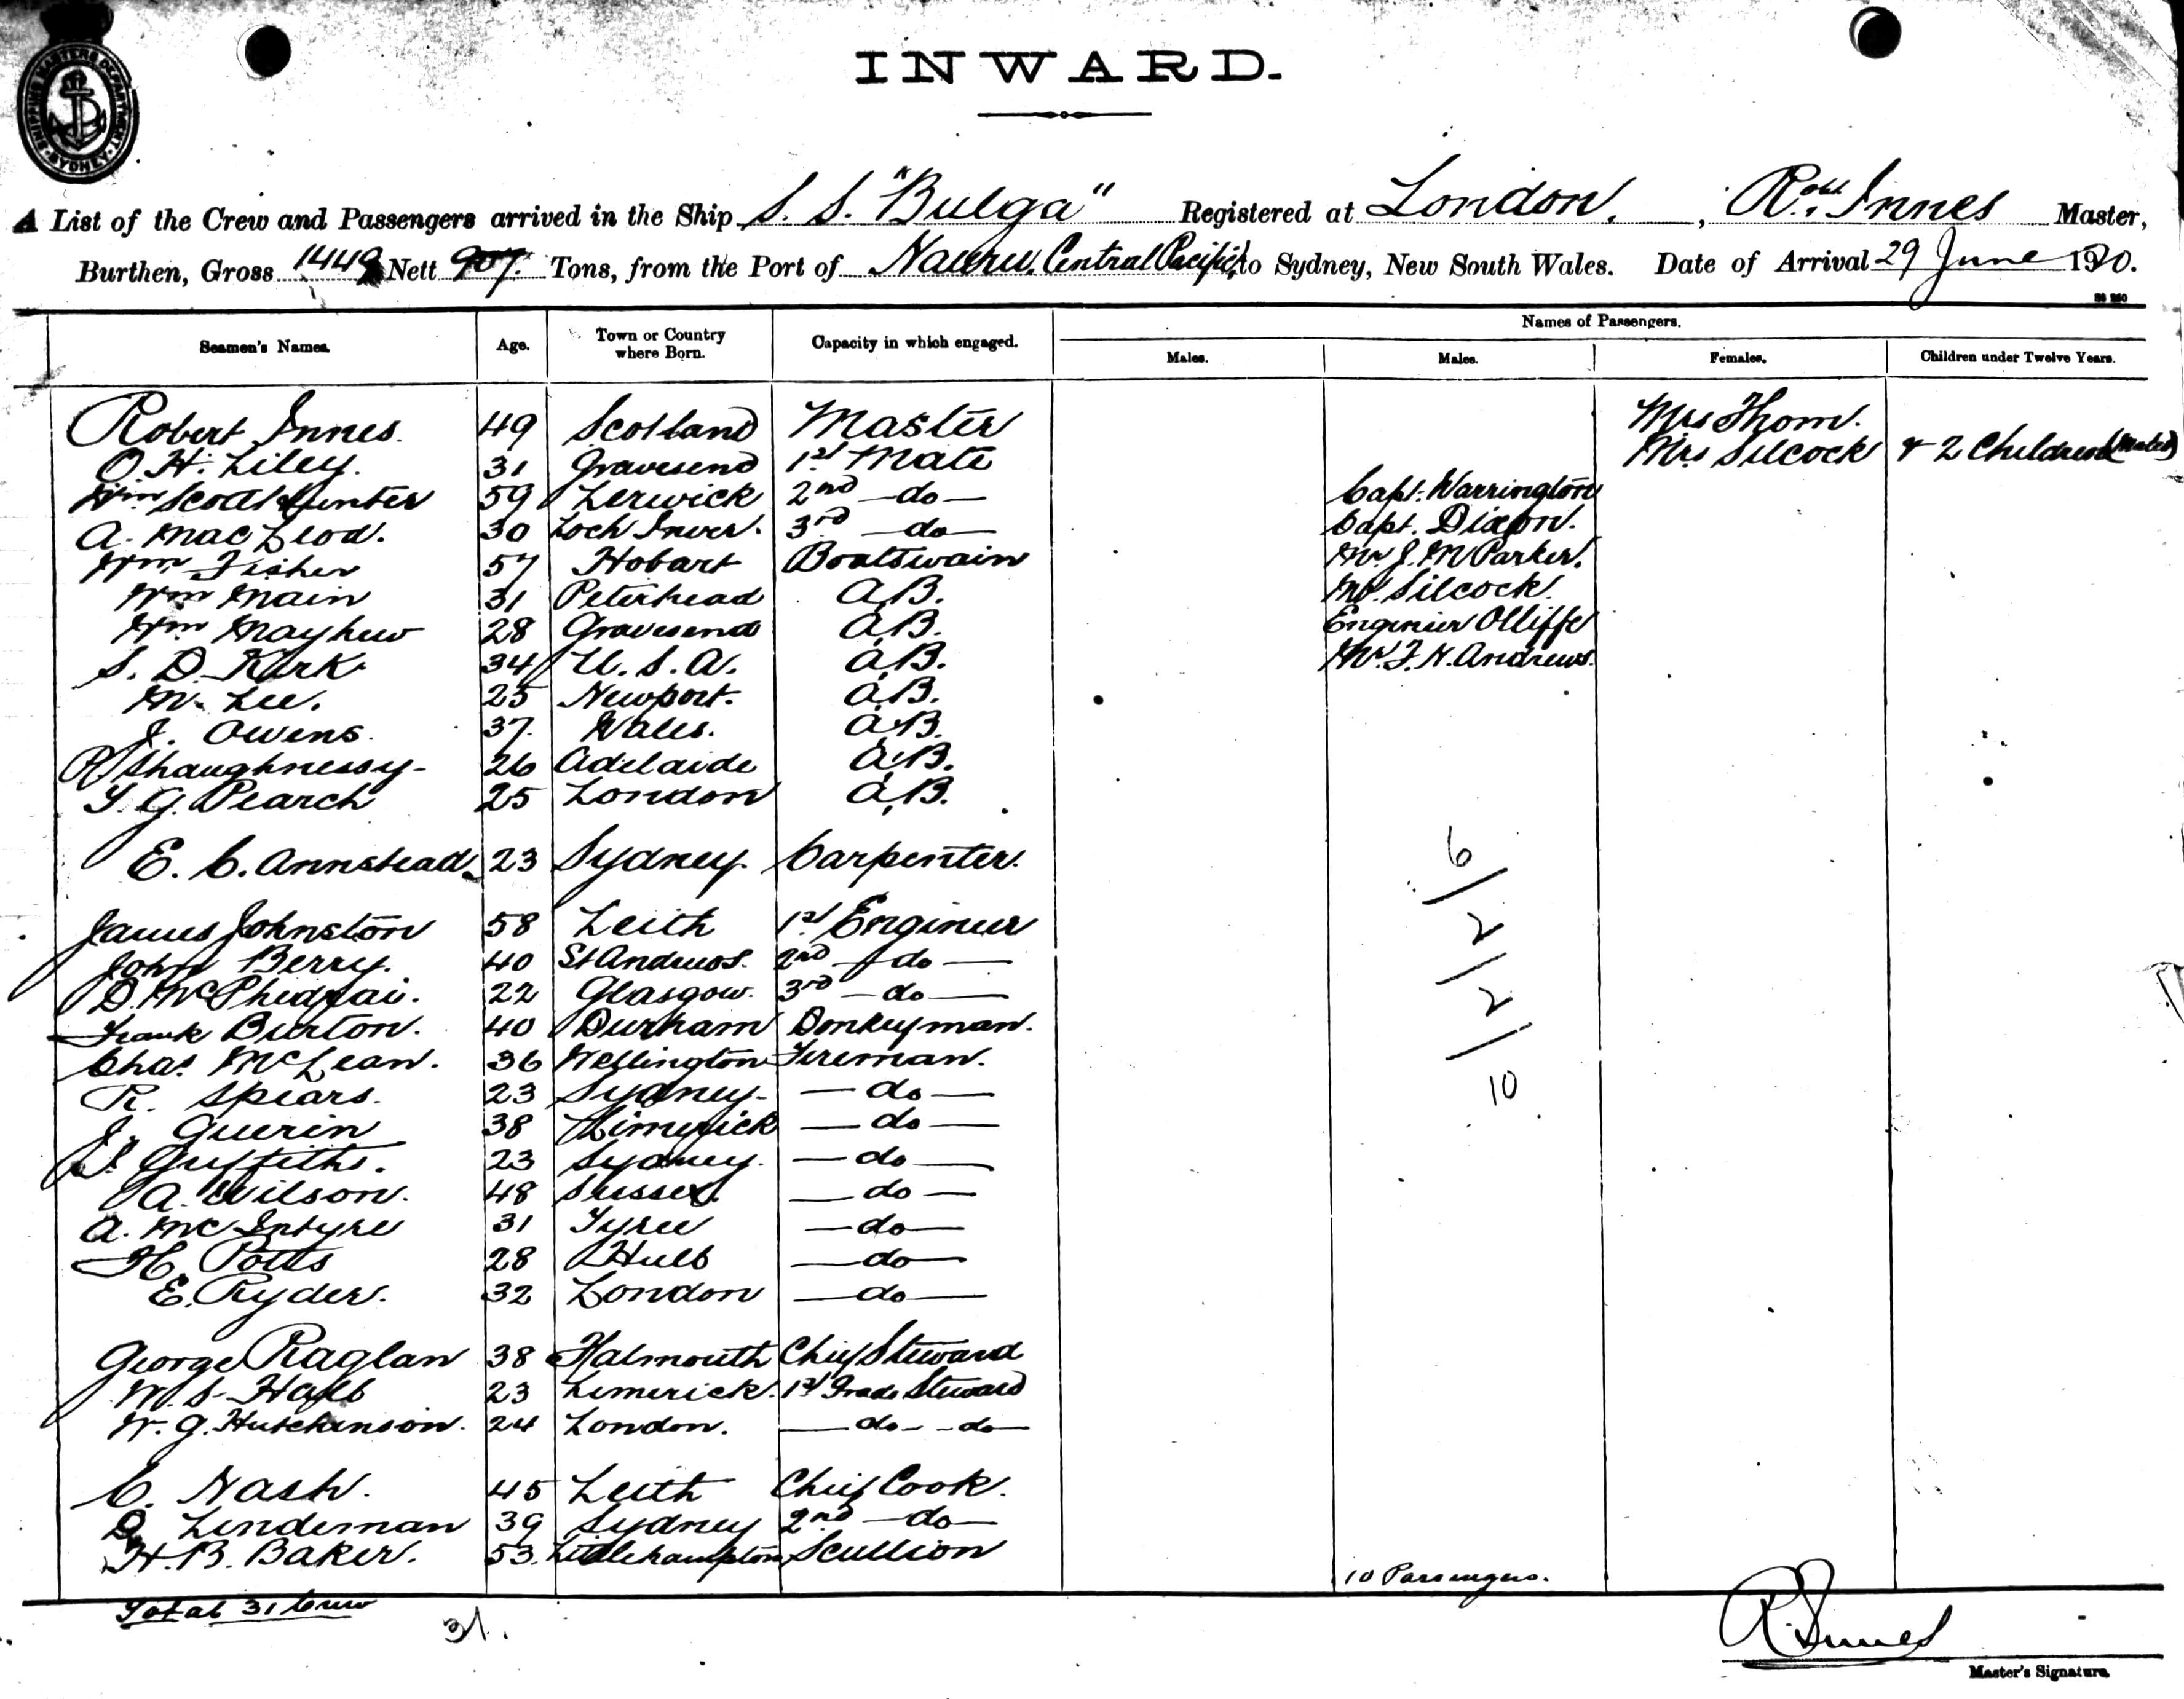 SHIPPING MASTERS DEPARTMENT SYDNEY
INWARD.
A List of the Crew and Passengers arrived in the Ship S. S. "Bulga" Registered at London. , Robt. Innes Master,
Burthen, Gross 1449 Nett 907. Tons, from the Port of Nauru, Central Pacific, to Sydney, New South Wales. Date of Arrival 29 June 1920.
Names of Passengers.
Seamen's Names. Age. Town or Country where Born. Capacity in which engaged. Males. Males. Females. Children under Twelve Years.
Robert Innes. 49 Scotland Master Mrs Thom.
O. H. Liley. 31 Gravesend 1st Mate Mrs Silcock & 2 Children (Males)
Wm Scott Hunter 59 Lerwick 2nd —do— Capt. Warrington
A. MacLeod. 30 Loch Inver. 3rd —do— Capt. Dixon.
Wm Fisher 57 Hobart Boatswain Mr. J. M Parker.
Wm Main 31 Peterhead A.B. Mr. Silcock.
Wm Mayhew 28 Gravesend A.B. Engineer Olliffe
S. D. Kirk 34 U. S. A. A.B. Mr. F. N. Andrews.
M. Lee. 25 Newport. A.B.
J. Owens. 37. Wales. A.B.
P. Shaughnessy- 26 Adelaide A.B.
T. G. Pearch 25 London A.B.
E. C. Annstead. 23 Sydney. Carpenter.
6/2/2/10
James Johnston 58 Leith 1st Engineer
John Berry. 40 St Andrews. 2nd —do—
D. 22 Glasgow. 3rd —do—
Frank Burton. 40 Durham Donkeyman.
Chas. McLean. 36 Wellington Fireman.
R. Spears. 23 Sydney- —do—
J. Guerin 38 Limerick —do—
Griffiths. 23 Sydney. —do—
A. Wilson. 48 Sussex. —do—
A. McIntyre 31 Tyree —do—
H. Potts 28 Hull —do—
E. Ryder. 32 London —do—
George Raglan 38 Falmouth Chief Steward
W. S- Hall 23 Limerick. 1st Grade Steward
W. G. Hutchinson. 24 London. —do- -do—
C. Nash. 45 Leith Chief Cook.
D. Lindeman 39 Sydney 2nd —do—
H. B. Baker. 53. Littlehampton Scullion
10 Passengers.
Total 31 Crew
31.
R. Innes
Master's Signature.